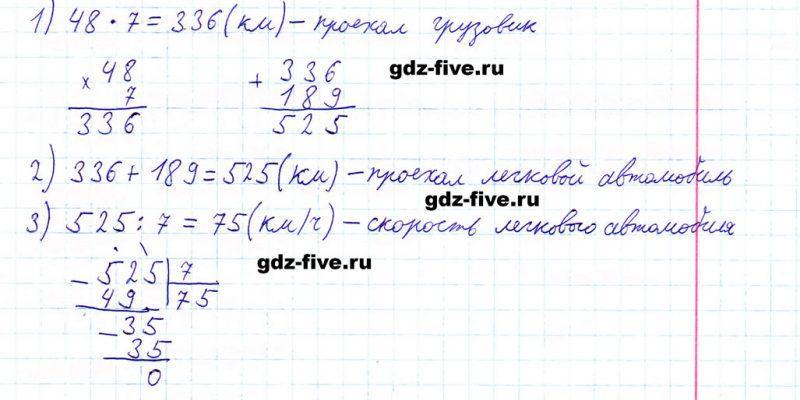 1) 48 · 7 = 336 (км) – проехал грузовик
× 48
7
336
+ 336
189
525
gdz-five.ru
2) 336 + 189 = 525 (км) – проехал легковой автомобиль
gdz-five.ru
3) 525 : 7 = 75 (км/ч) – скорость легкового автомобиля
gdz-five.ru
– 525 | 7
49 | 75
– 35
35
0